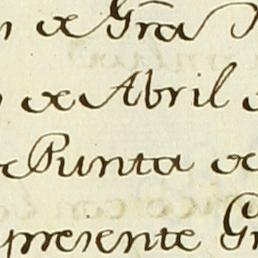 de Gra
de Abril
de Punta de
presente Gr